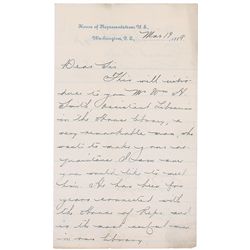 House of Representatives U.S.
Washington, D.C., Mar 19, 
Dear Sir
This will intro-
duce to you Mr Wm H.
Smith Assistant Librarian
in the House Library, a
very remarkable man, who
wants to make your ac-
quaintance. I am sure
you would like to meet
him. He has been for
years connected with
the House of Reps and
is the most useful man
in our Library.